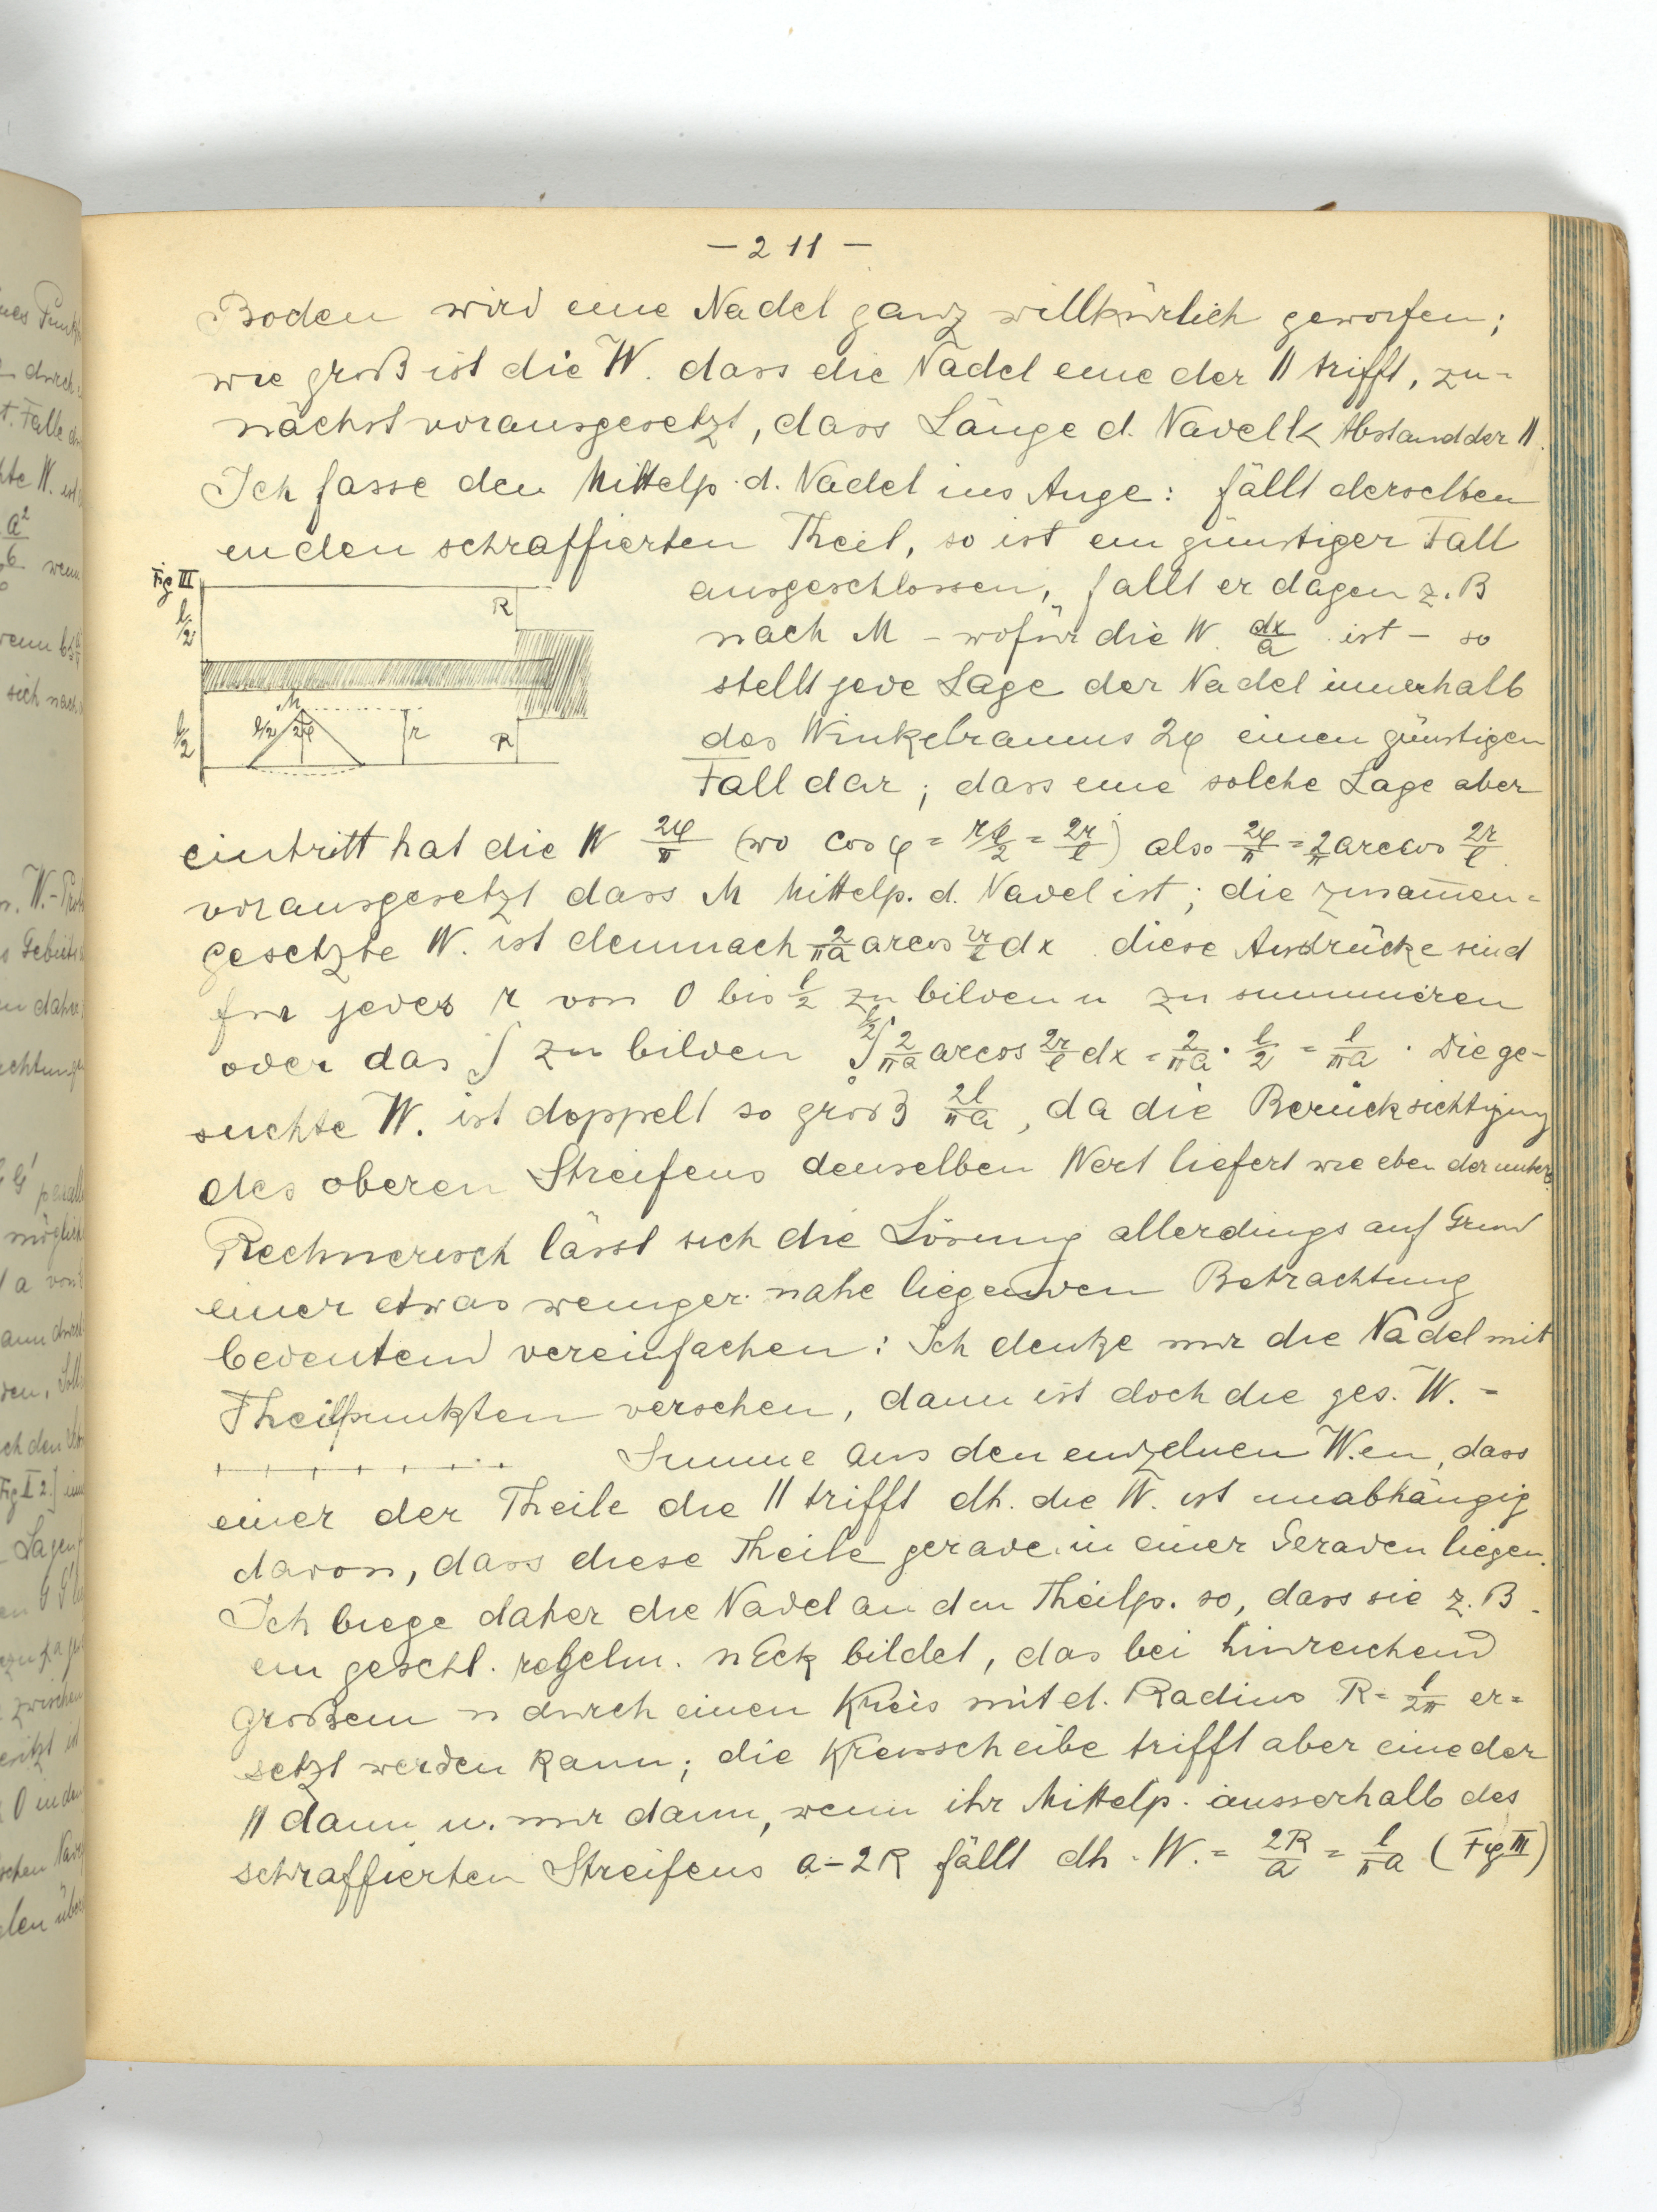 – 211 –
Boden wird eine Nadel ganz willkürlich geworfen;
wie groß ist die W. dass die Nadel eine der || trifft, zu-
nächst vorausgesetzt, dass Länge d. Nadel l < Abstand der ||.
Ich fasse den Mittelp. d. Nadel ins Auge: fällt derselben
in den schraffierten Theil, so ist ein günstiger Fall
Fig III
ausgeschlossen, fällt er dagen z. B
nach M – wofür die W. dx/a ist – so
stellt jede Lage der Nadel innerhalb
des Winkelraums 2φ einen günstigen
Fall dar; dass eine solche Lage aber
l/2
l/2
R
M
l/2 2φ
r
R
eintritt hat die W 2φ/π (wo cos φ = r/l/2 = 2r/l) also 2φ/π = 2/π arccos 2r/l
vorausgesetzt dass M Mittelp. d. Nadel ist; die zusam̄en=
gesetzte W. ist demnach 2/πa arcos 2r/l dx diese Ausdrücke sind
für jedes r von 0 bis l/2 zu bilden u zu summieren
oder das ∫ zu bilden ∫₀^l/2 2/πa arcos 2r/l dx = 2/πa · l/2 = l/πa . Die ge-
suchte W. ist doppelt so groß 2l/πa, da die Berücksichtigung
des oberen Streifens denselben Wert liefert wie eben der untere.
Rechnerisch lässt sich die Lösung allerdings auf Grund
einer etwas weniger nahe liegenden Betrachtung
bedeutend vereinfachen: Ich denke mir die Nadel mit
Theilpunkten versehen, dann ist doch die ges. W. =
Summe aus den einzelnen W.en, dass
einer der Theile die || trifft dh. die W. ist unabhängig
davon, dass diese Theile gerade in einer Geraden liegen.
Ich biege daher die Nadel an den Theilp. so, dass sie z. B.
ein geschl. regelm. nEck bildet, das bei hinreichend
großem n durch einen Kreis mit d. Radius R = l/2π er=
setzt werden kann; die Kreisscheibe trifft aber eine der
|| dann u. nur dann, wenn ihr Mittelp. ausserhalb des
schraffierten Streifens a–2R fällt dh. W. = 2R/a = l/πa (Fig III)